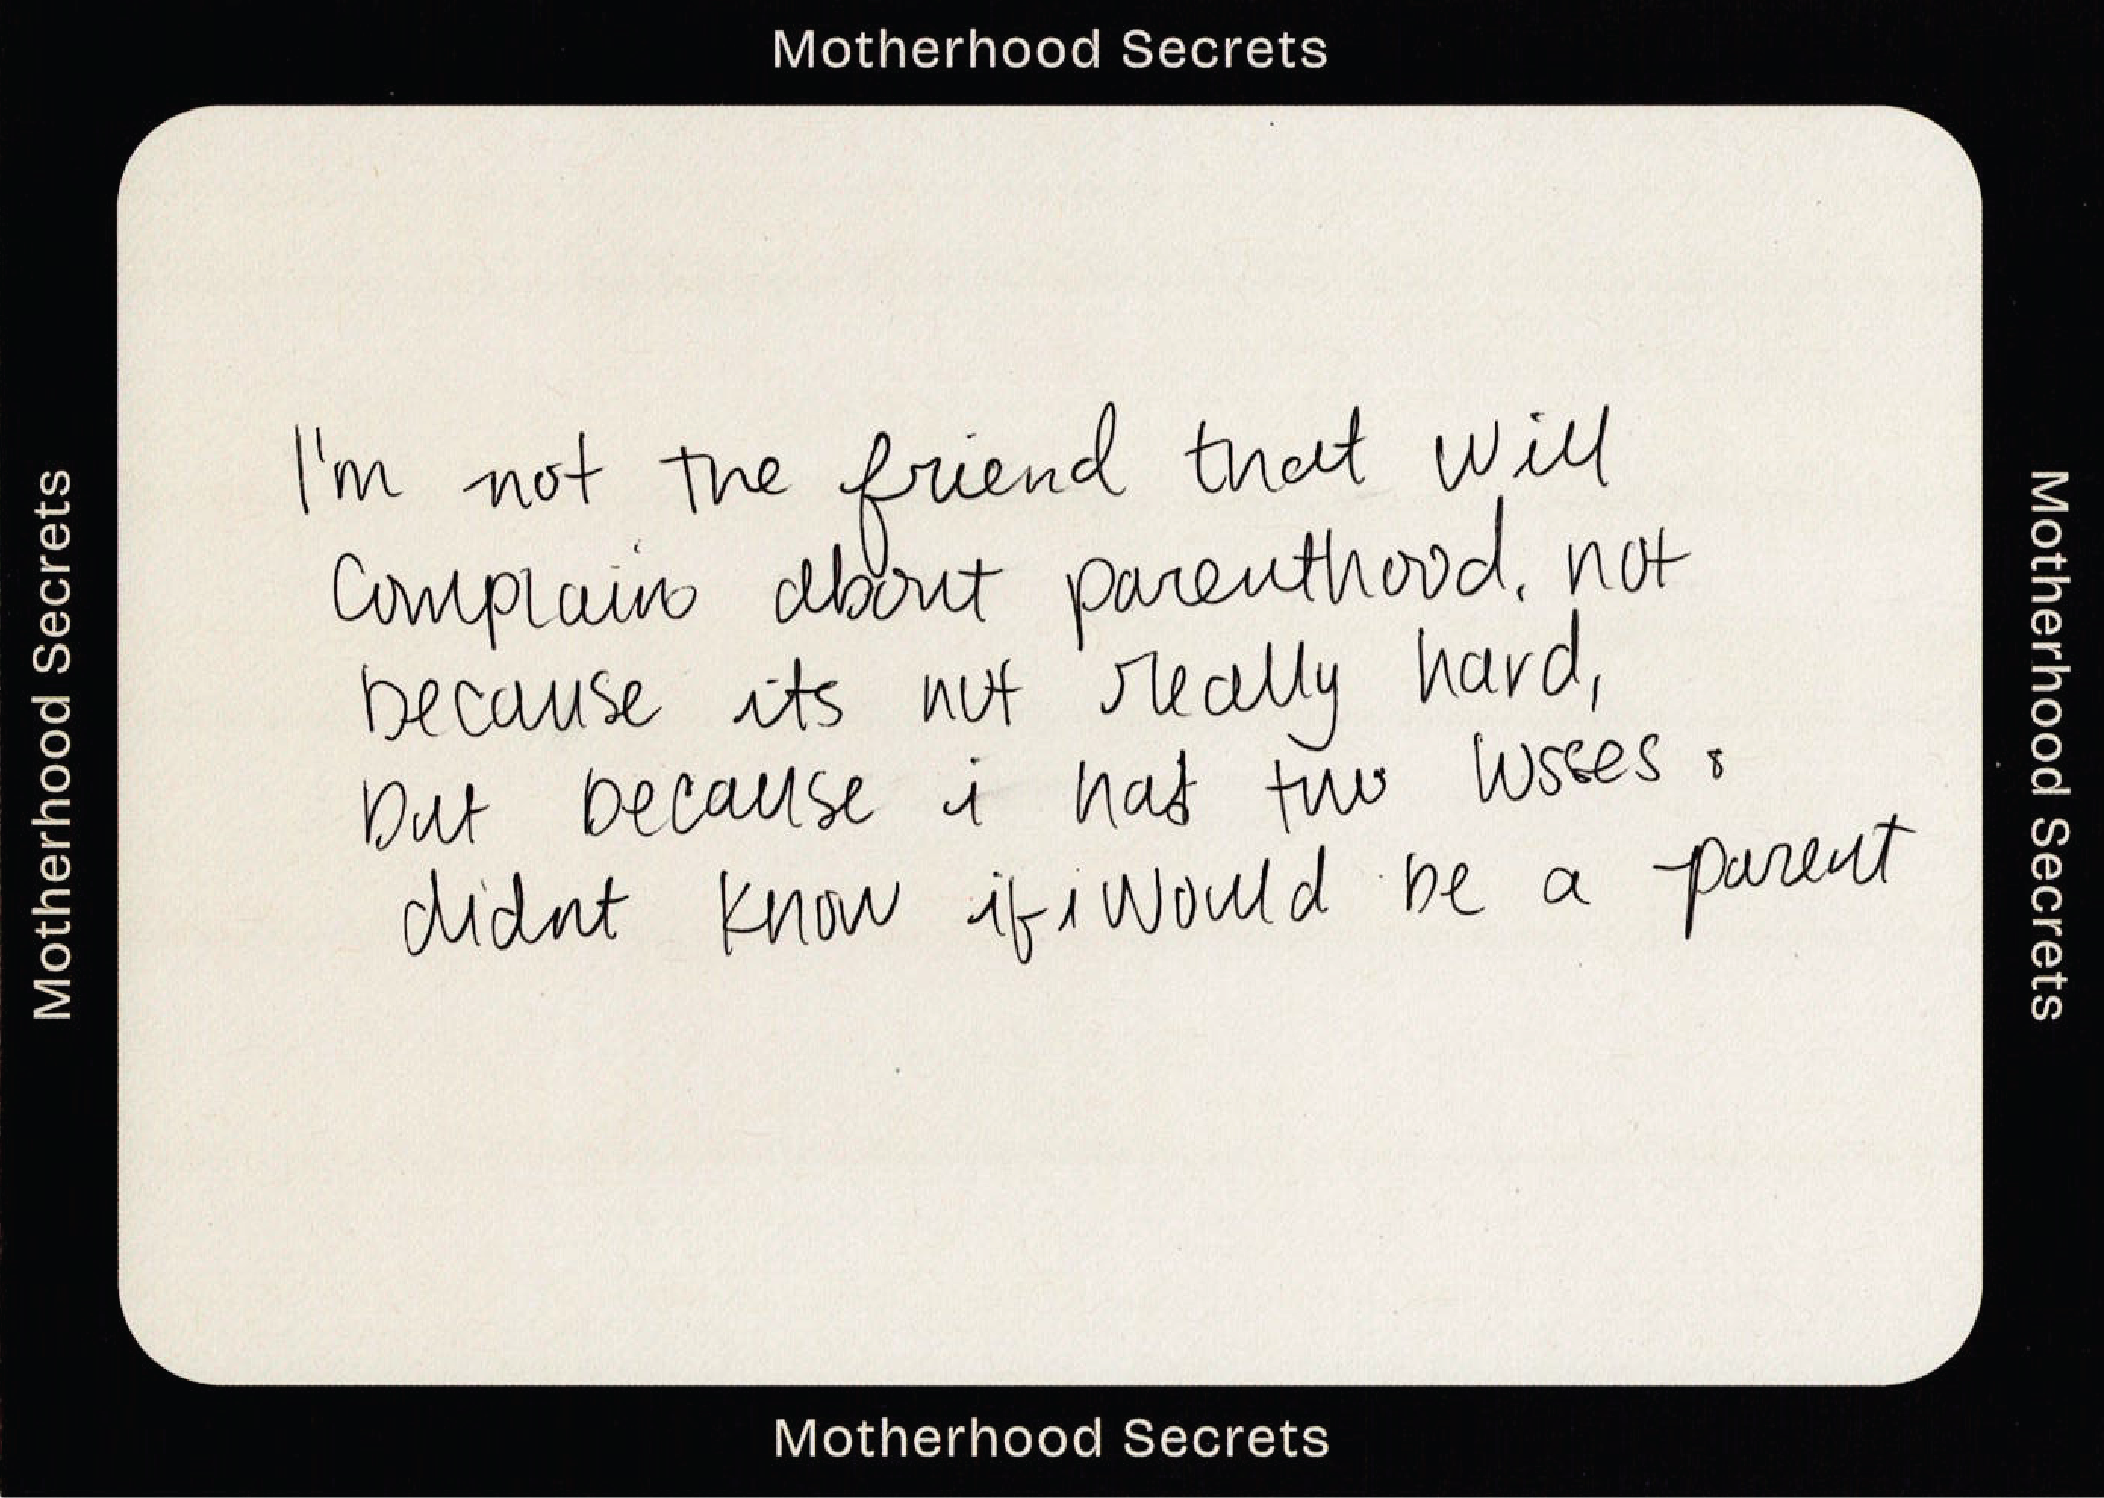 Motherhood Secrets
Motherhood Secrets
I'm not the friend that will
Complain about parenthood. not
because its not really hard,
but because i had two losses &
didnt know if i would be a parent
Motherhood Secrets
Motherhood Secrets